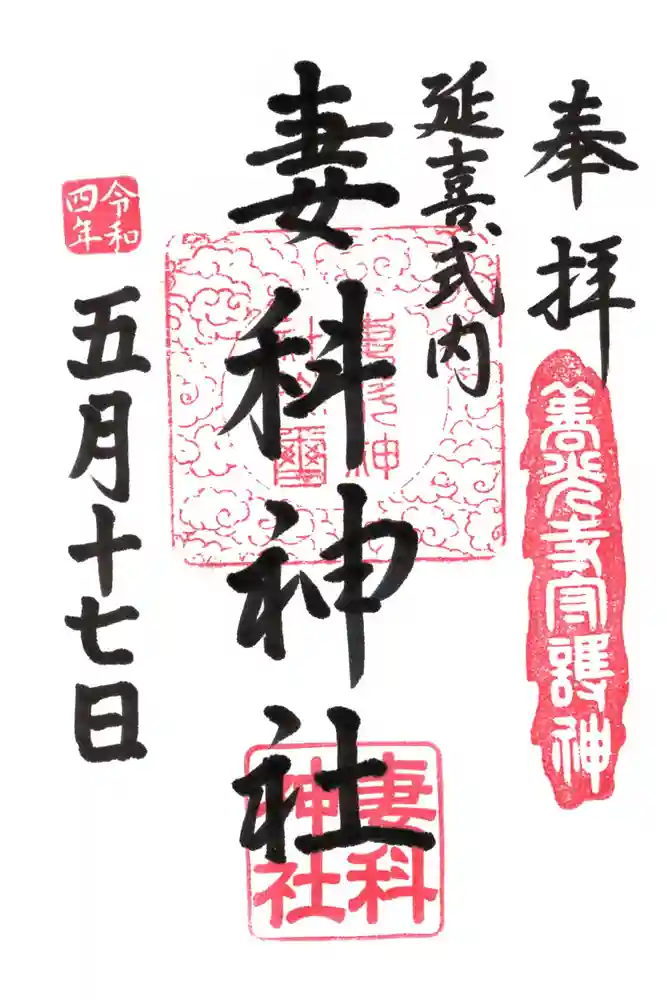 奉拝
善光寺守護神
延喜式内
妻科神社
妻科
神社
令和
四年
五月十七日